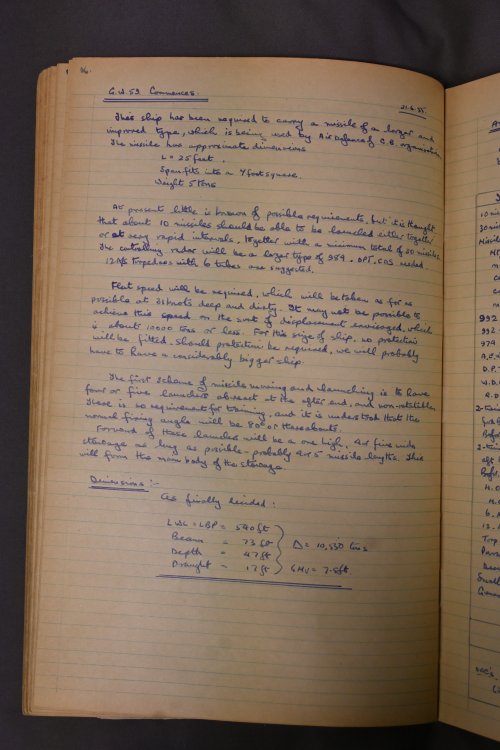 16.
G.W. 59. Commences.
21.6.55.
This ship has been required to carry a missile of a larger and
improved type, which is being used by Air Defence of G.B. organisation.
The missile has approximate dimensions
L = 25 feet.
Span fits into a 4 foot square.
Weight 5 tons
At present little is known of possible requirements, but it is thought
that about 10 missiles should be able to be launched either together
or at very rapid intervals, together with a minimum total of 20 missiles.
The controlling radar will be a larger type of 984. OPT. COS. needed
12 A/S Torpedoes with 6 tubes are suggested.
Fleet speed will be required, which will be taken as far as
possible at 31 knots deep and dirty. It may not be possible to
achieve this speed on the sort of displacement envisaged, which
is about 10000 tons or less. For this size of ship, no protection
will be fitted. Should protection be required, we will probably
have to have a considerably bigger ship.
The first scheme of missile moving and launching is to have
four or five launchers abreast at the after end, and non-rotatable.
There is no requirement for training, and it is understood that the
normal firing angle will be 80° or thereabouts.
Forward of these launchers will be a one high, four five wide
stowage as long as possible - probably 4 or 5 missile lengths. This
will form the main body of the stowage.
Dimensions :-
As finally decided :
LWL = LBP = 540 ft
Beam = 73 ft
Depth = 47 ft
Draught = 17 ft
Δ = 10,550 tons
GMs = 7.5 ft.
10 miss
30 miss
Missile
992
992
974
A.E.
D.P.T
W.D
A.D
2-twin
Before
2-twin
aft
Before
12. A
Torp
Small